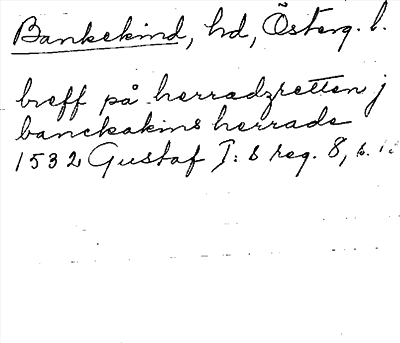 Bankekind, hd, Österg. l.
breff på herradzretten j
banckakins herrade
1532 Gustaf I: s reg. 8, s.